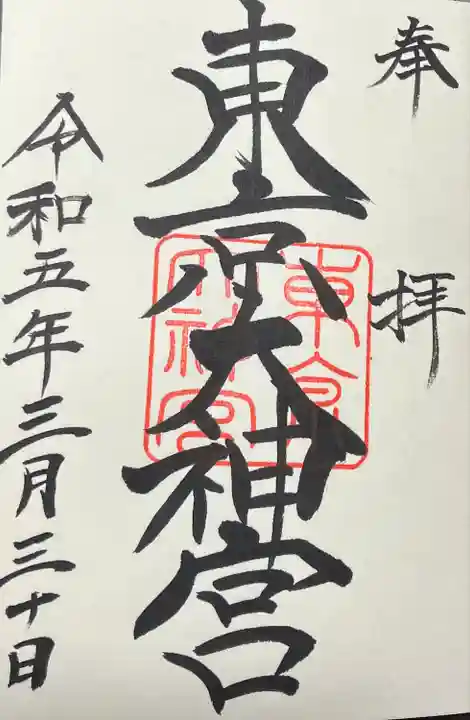 奉拝
東京大神宮
東京
大神宮
令和五年三月三十日